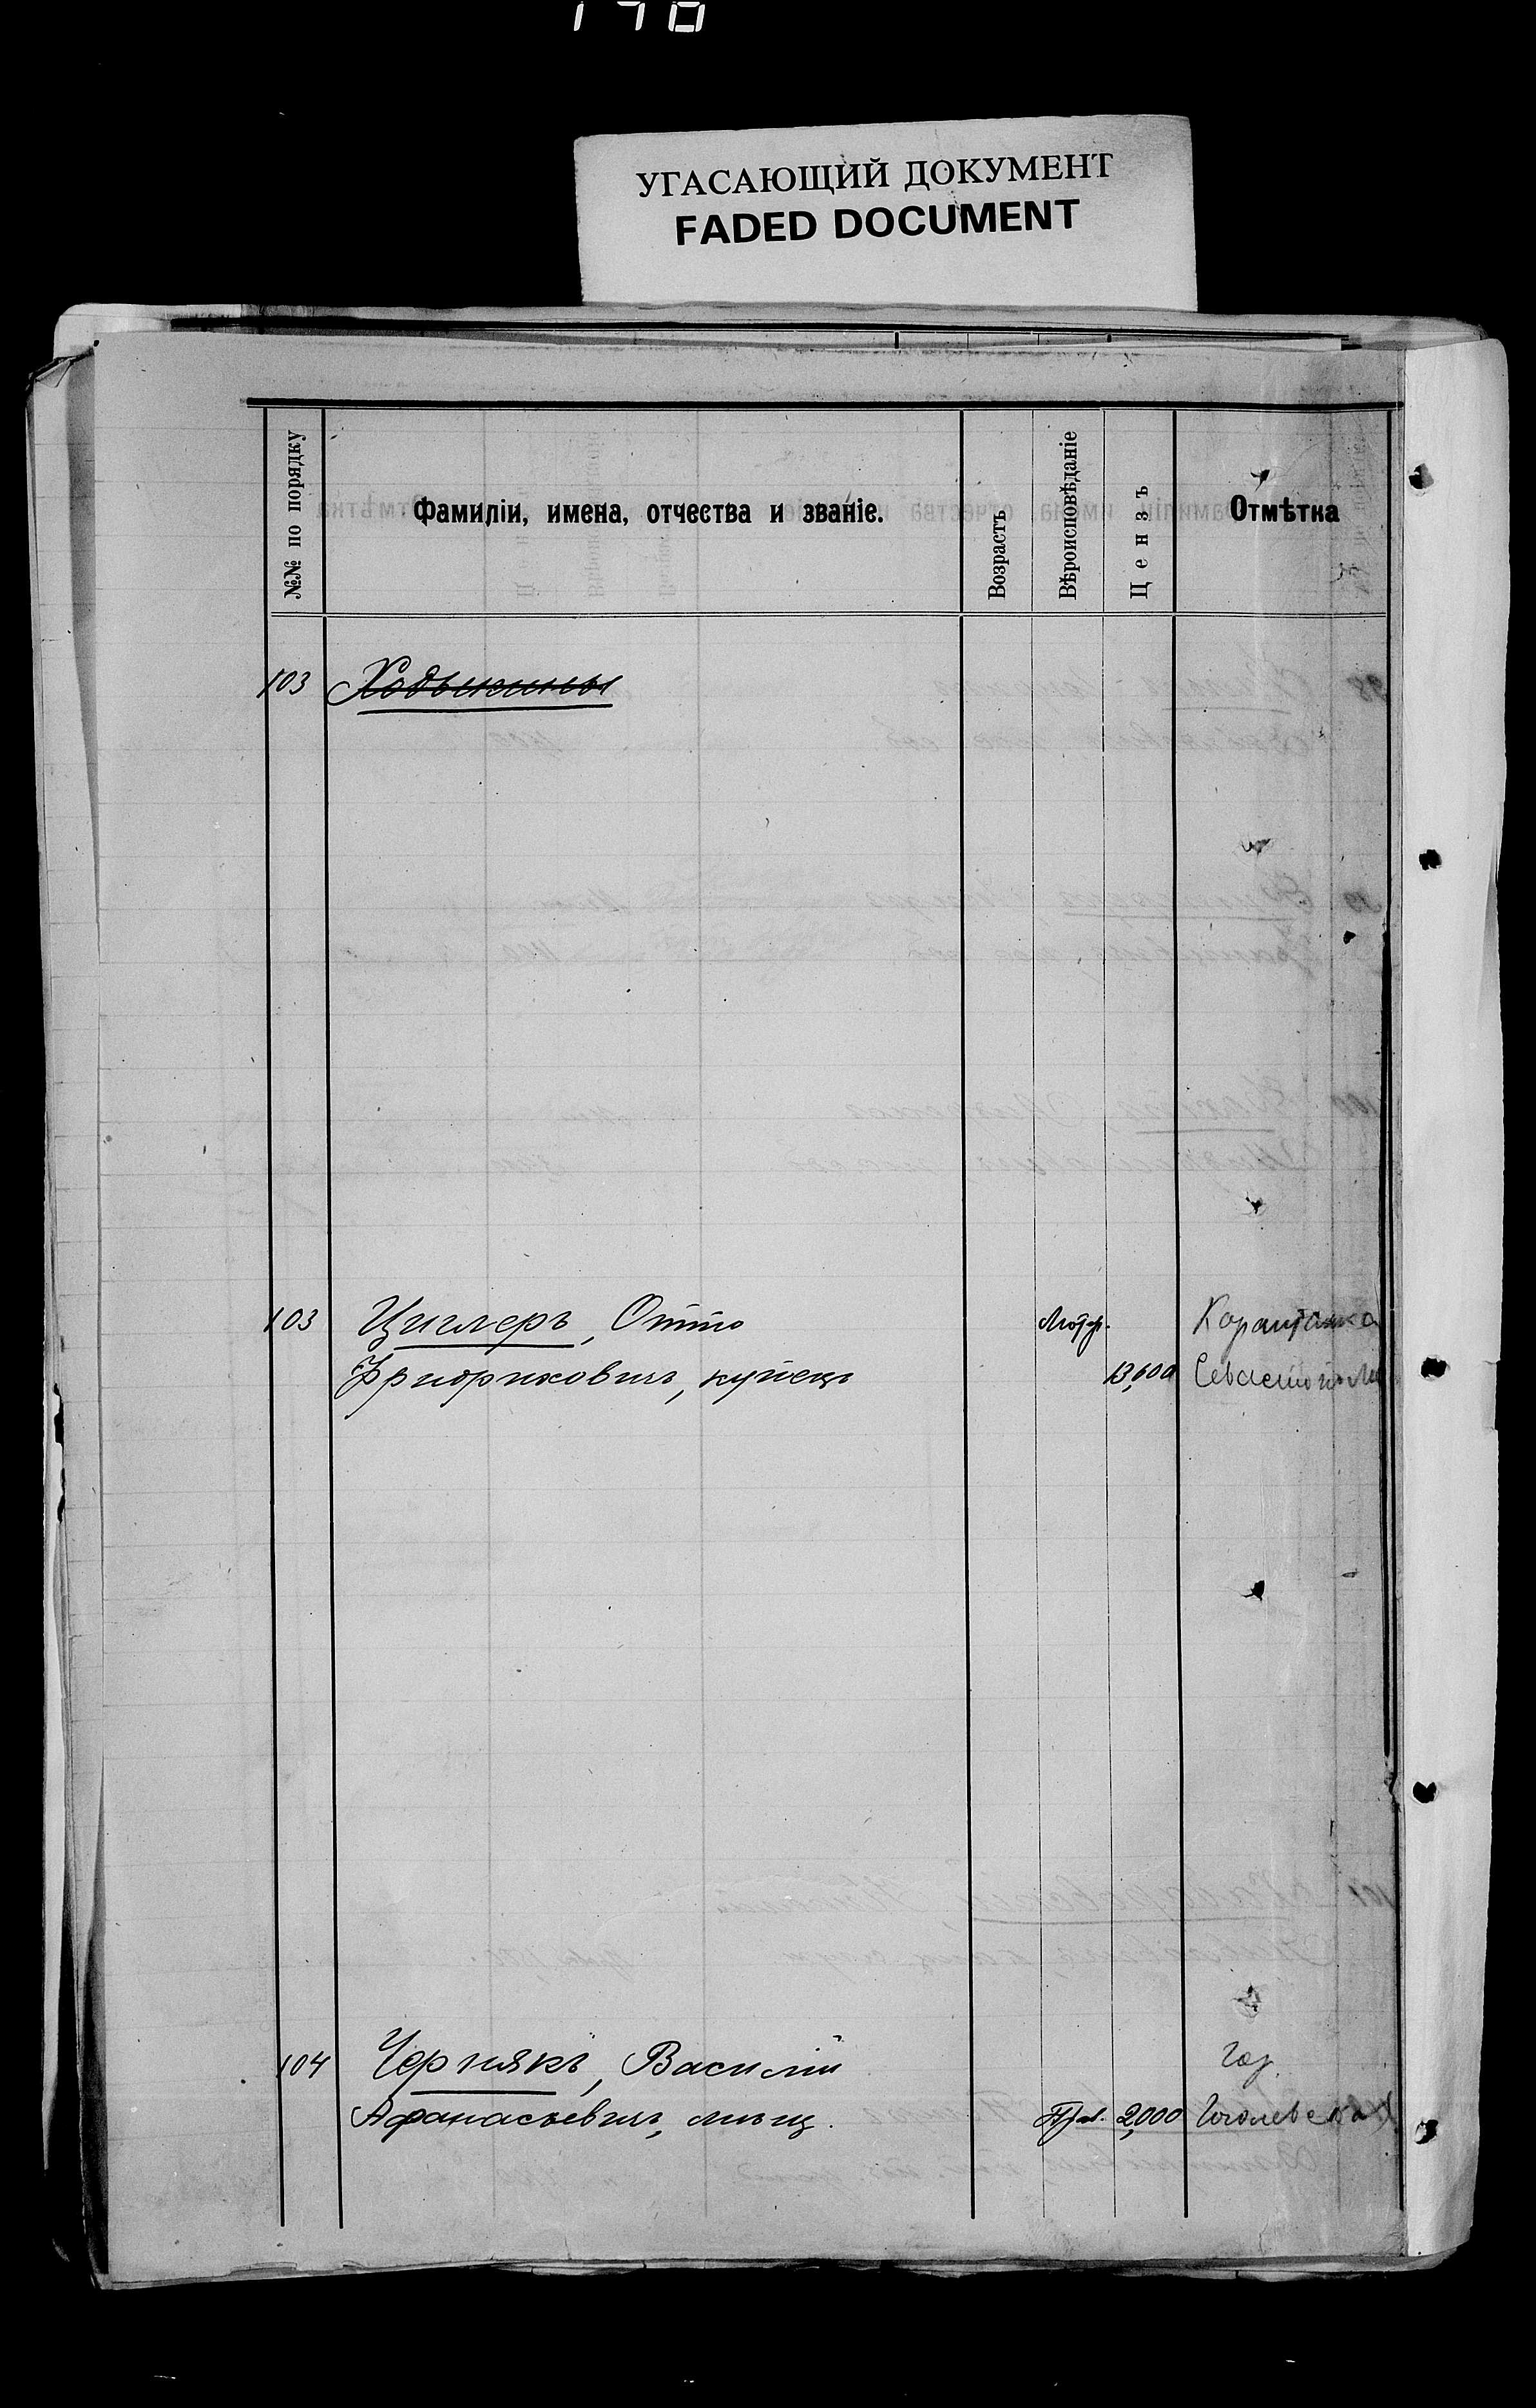 УГАСАЮЩИЙ ДОКУМЕНТ
FADED DOCUMENT
№№ по порядку Фамиліи, имена, отчества и званіе. Возрастъ Вѣроисповѣданіе Цензъ Отмѣтка
103
103 Циглеръ, Отто Лютер.
Фридриховичъ, купецъ 13,600 Севастополь
104 Чернякъ, Василій
Афанасьевичъ, мѣщ. Прав. 2,000 Гоголевская